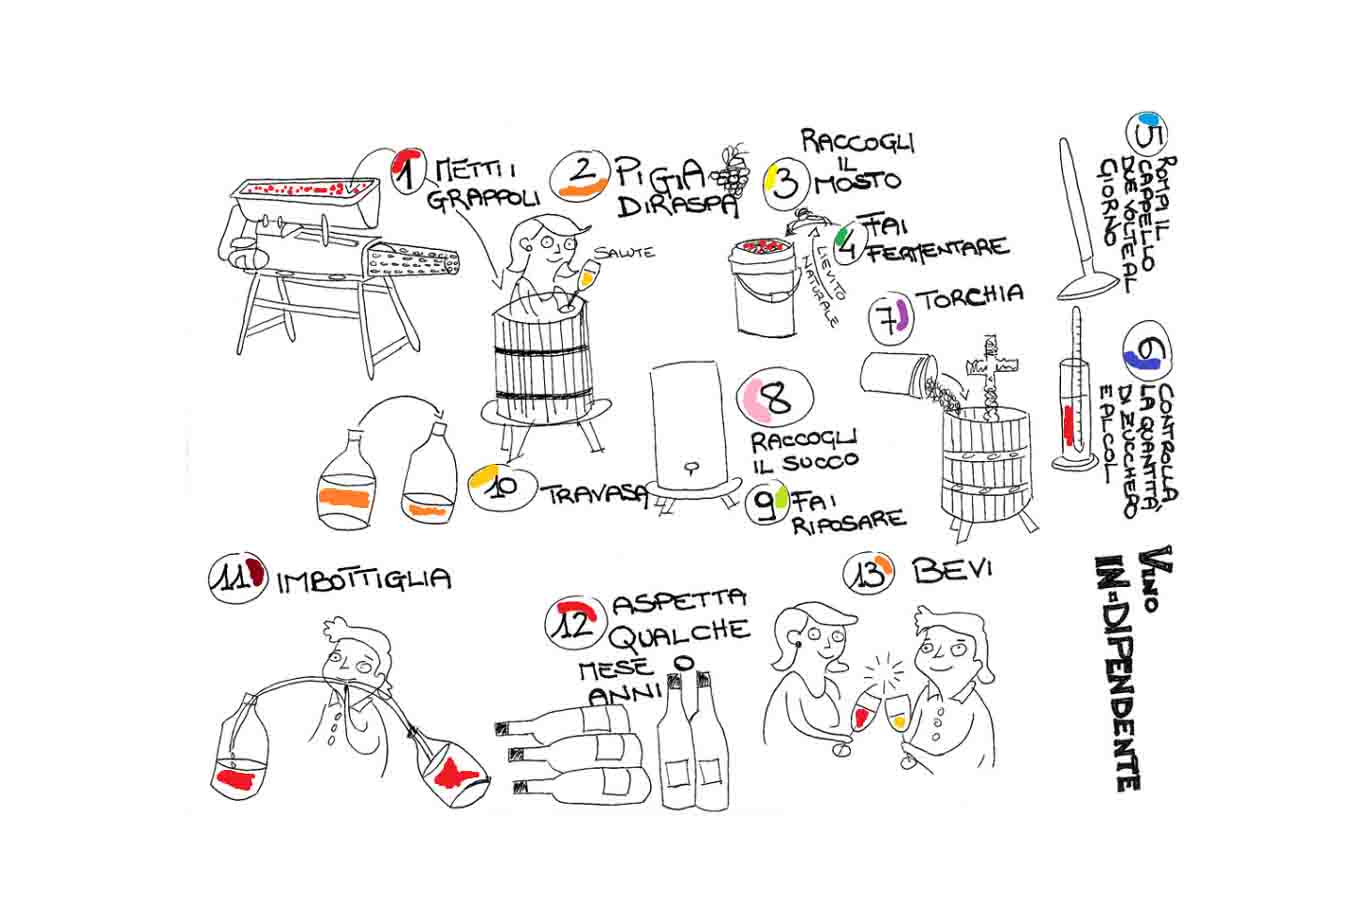 1
METTI I
GRAPPOLI
2
PIGIA
DIRASPA
SALUTE
3
RACCOGLI
IL
MOSTO
4
FAI
FERMENTARE
LIEVITO
NATURALE
5
ROMPI IL
CAPPELLO
DUE VOLTE AL
GIORNO
6
CONTROLLA
LA QUANTITÀ
DI ZUCCHERO
E ALCOL
7
TORCHIA
8
RACCOGLI
IL SUCCO
9
FAI
RIPOSARE
10
TRAVASA
11
IMBOTTIGLIA
12
ASPETTA
QUALCHE
MESE O
ANNI
13
BEVI
VINO
IN-DIPENDENTE